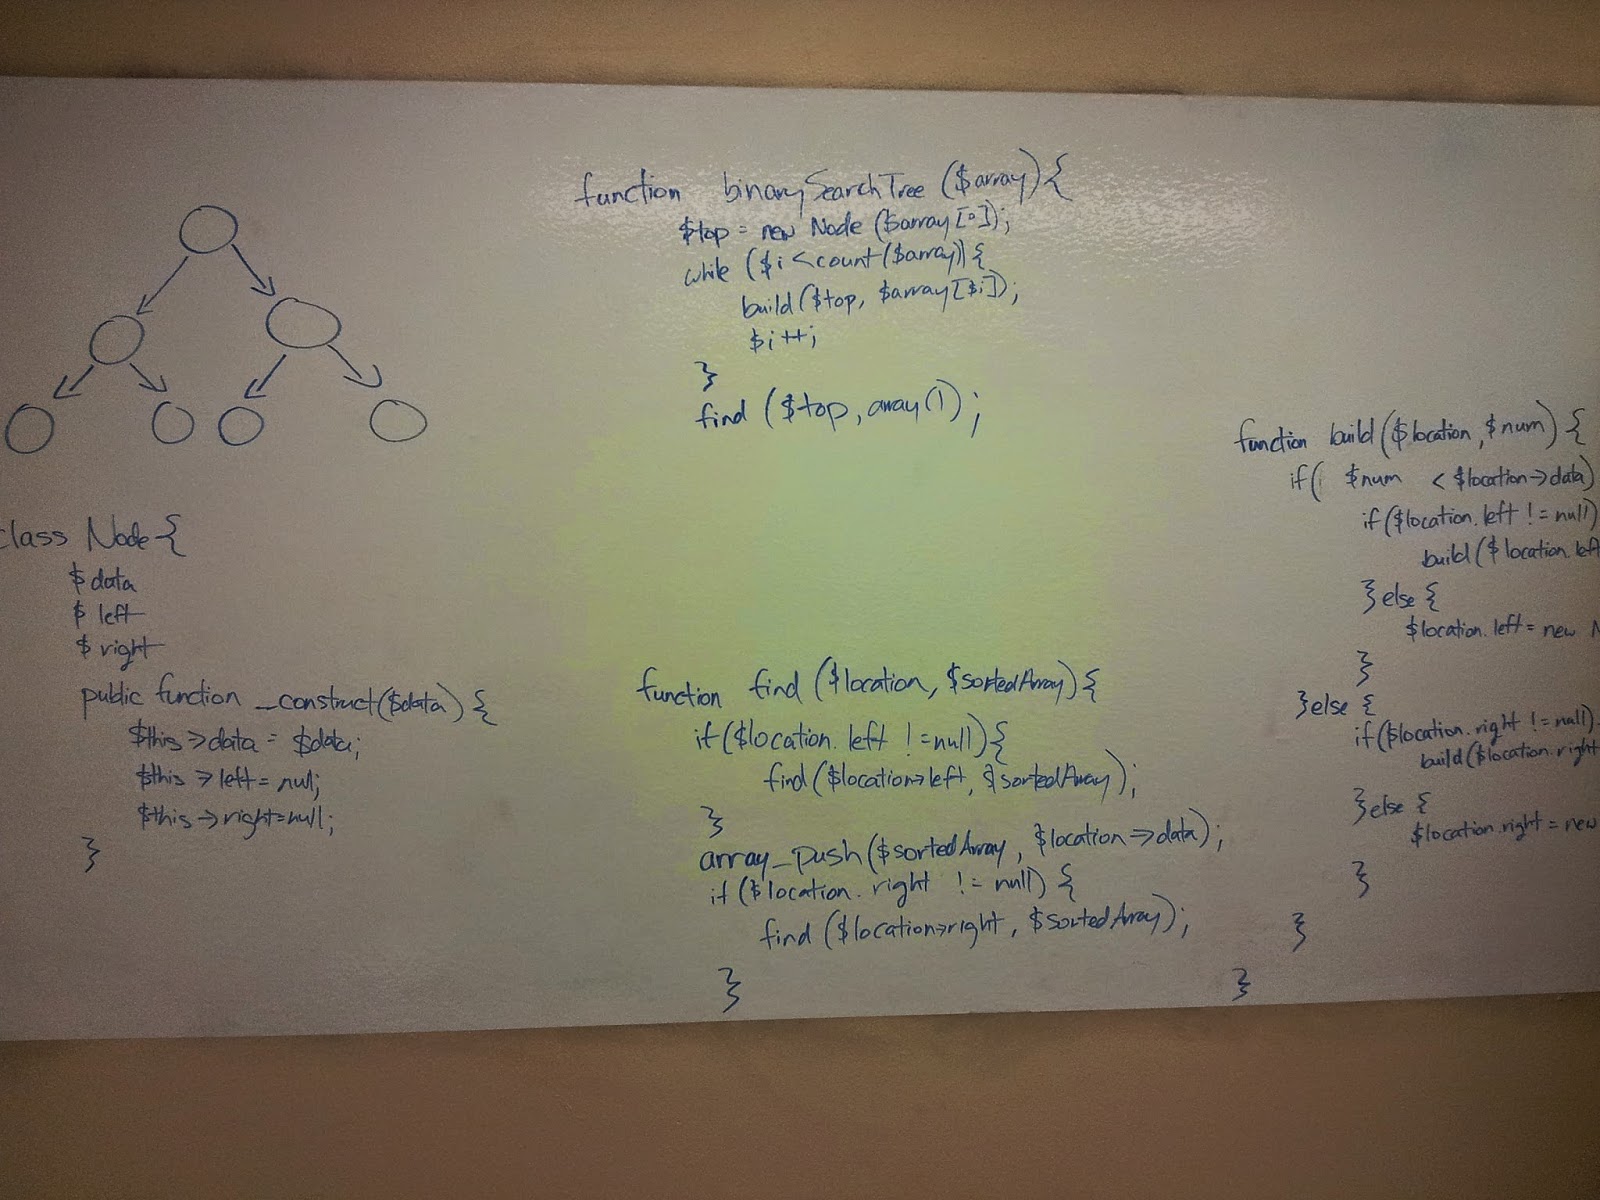 function binarySearchTree ($array){
$top = new Node ($array[0]);
while ($i < count($array)){
build($top, $array[$i]);
$i++;
}
find ($top, array());
class Node {
$data
$left
$right
public function _construct($data) {
$this->data = $data;
$this->left = null;
$this->right=null;
}
function find ($location, $sortedArray){
if($location.left != null){
find($location->left, $sortedArray);
}
array_push($sortedArray, $location->data);
if($location.right != null) {
find ($location->right, $sortedArray);
}
function build($location, $num) {
if( $num < $location->data)
if($location.left != null)
build($location.left
}else {
$location.left = new N
}
}else {
if($location.right != null)
build($location.right
}else {
$location.right = new
}
}
}